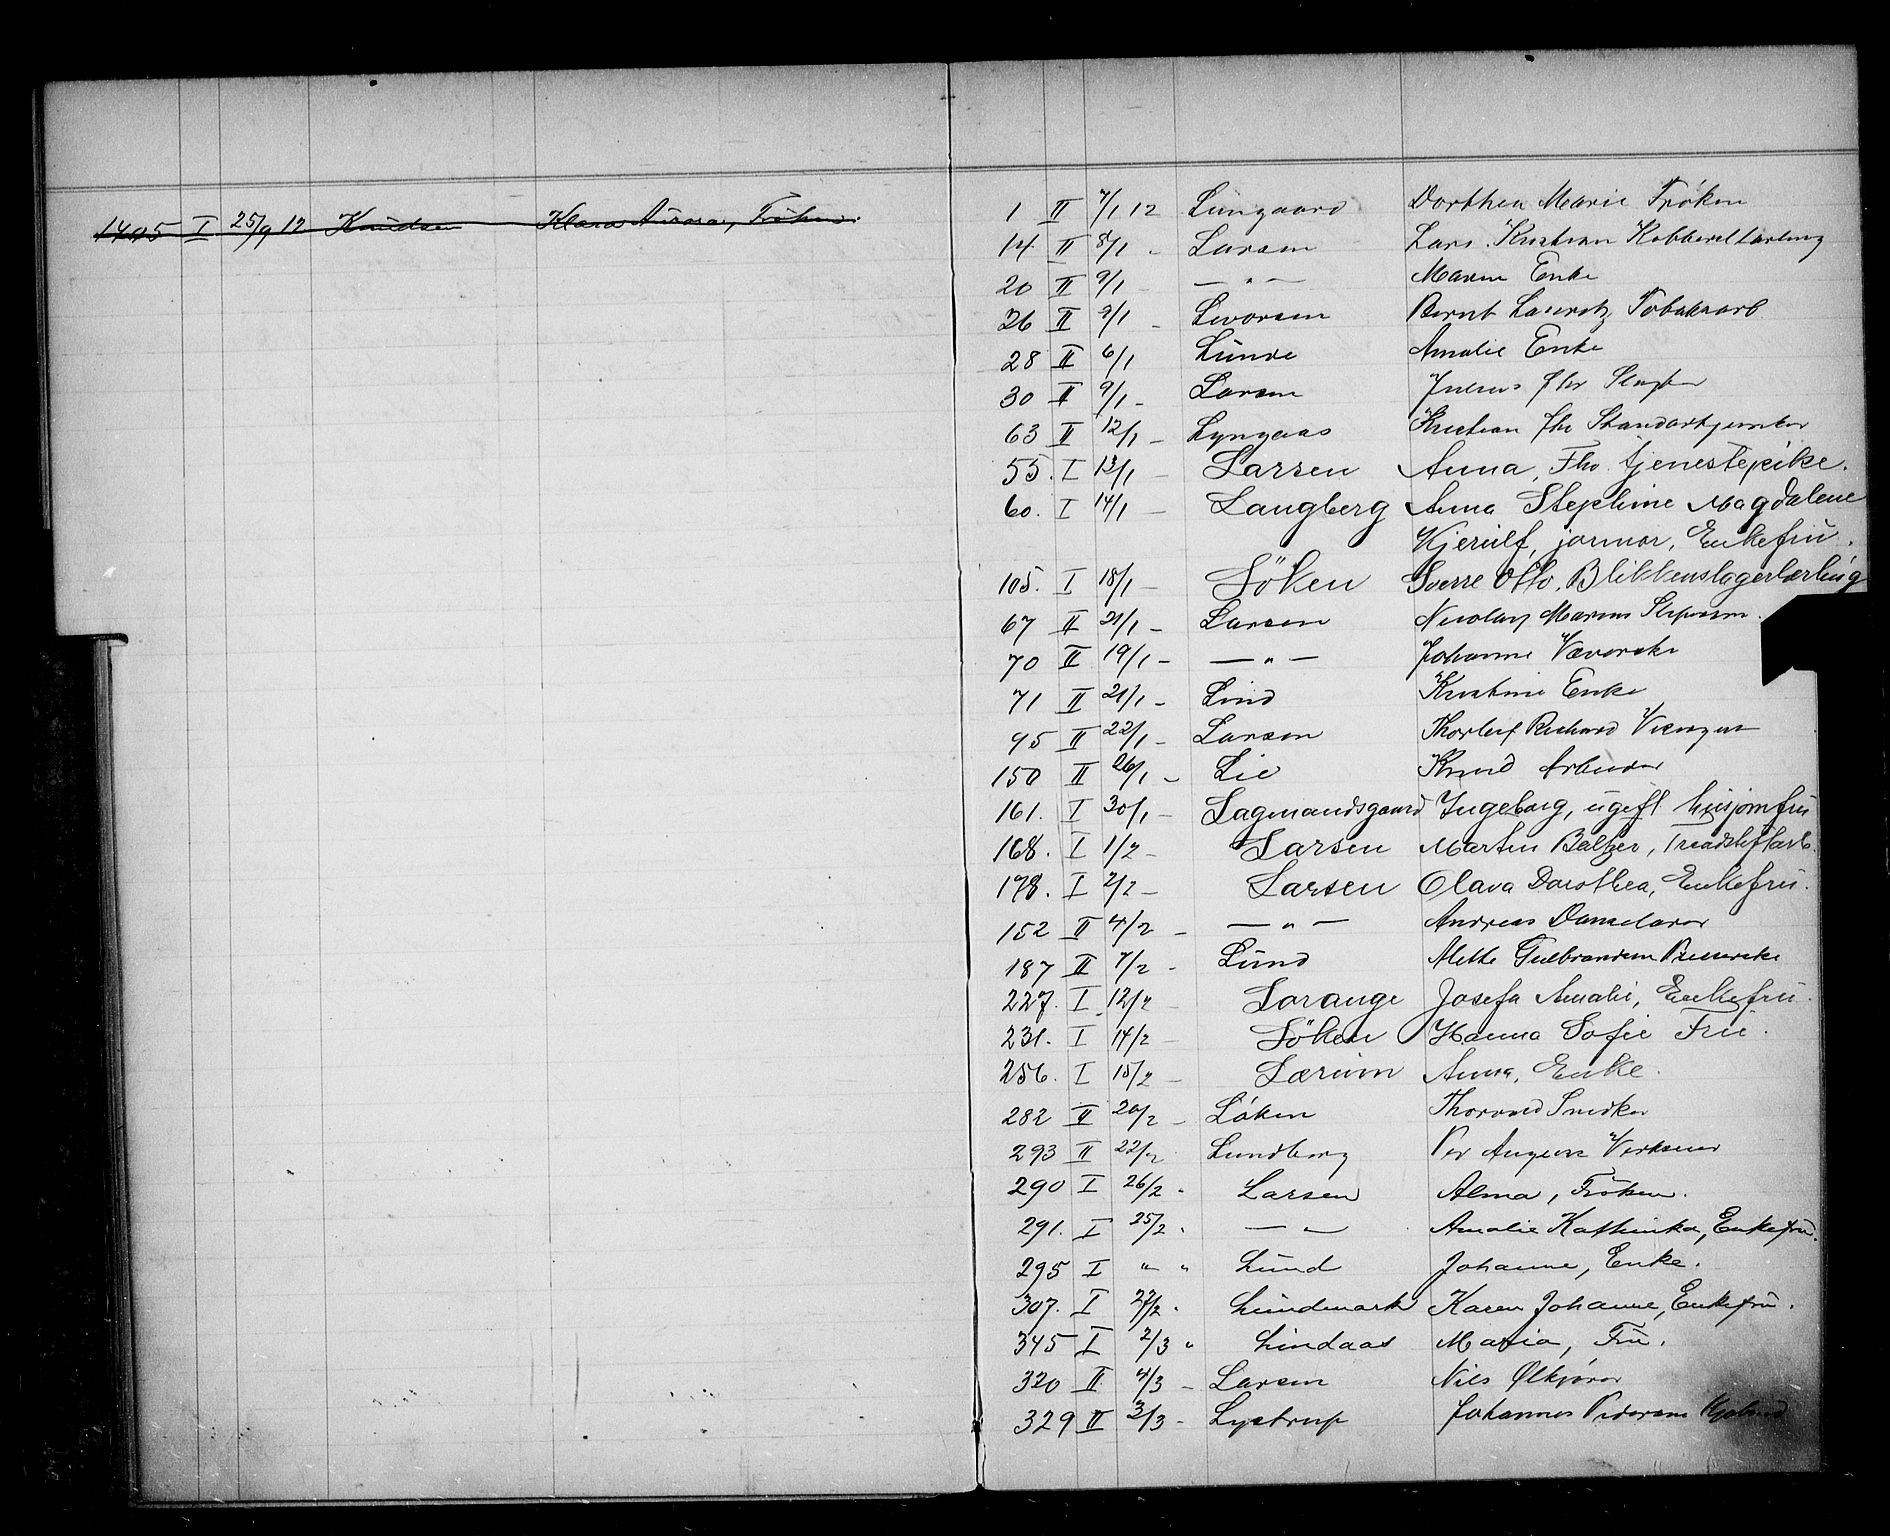 1405 I 25/9 12 Knudsen Klara Aurora, Frøken.
1 II 7/1 12 Lungaard Dorthea Marie Frøken
14 II 8/1 - Larsen Lars Kristian
20 II 9/1 - — " — Maren Enke
26 II 9/1 - Levorsen Bernt Lauritz Tobaksarb
28 II 6/1 Lunde Amalie Enke
30 II 9/1 - Larsen Julius fhv
63 II 12/1 - Lyngaas Kristian fhv
55. I 13/1 - Larsen Anna, Fhv. tjenestepike.
60. I 14/1 - Langberg Anna Stephine Magdalene
Kjerulf, jormor, Enkefru.
105. I 18/1 - Löken Sverre Otto, Blikkenslagerlærling
67 II 21/1 - Larsen Nicolay Marius
70 II 19/1 - — " — Johanne Væverske
71 II 21/1 - Lind Kristine Enke
95 II 22/1 - Larsen Thorleif Richard Visergut
150 II 26/1 - Lie Knud Arbeider
161. I 30/1 - Lagmandsgaard Ingeborg, ugift husjomfru
168. I 1/2 - Larsen Martin Baltzer,
178. I 2/2 - Larsen Olava Dorothea, Enkefru.
152 II 4/2 - — " — Andreas
187 II 7/2 - Lund Mette Gulbrandsen
227. I 12/2 - Lorange Josefa Amalie, Enkefru.
231. I 14/2 - Löken Hanna Sofie Frue.
256. I 15/2 - Lærum Anna, Enke.
282 II 20/2 - Løken Thorvald Snedker
293 II 22/2 Lundberg Per August
290 I 26/2 - Larsen Alma, Frøken.
291. I 25/2 " — " Amalie Kathinka, Enkefru.
295 I " " Lund Johanne, Enke.
307. I 27/2 " Lundmark Karen Johanne, Enkefru.
345 I 2/3 " Lindaas Maria, Fru.
320 II 4/3 - Larsen Nils Ølkjører
329 II 3/3 - Lystrup Johannes Pedersen